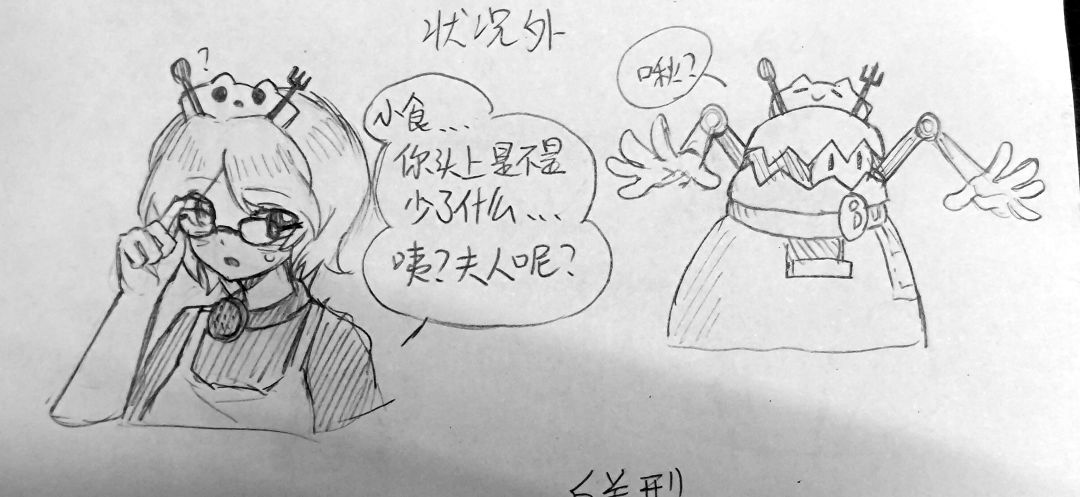 状况外
?
小食...
你头上是不是
少了什么...
咦?夫人呢?
啾?
B